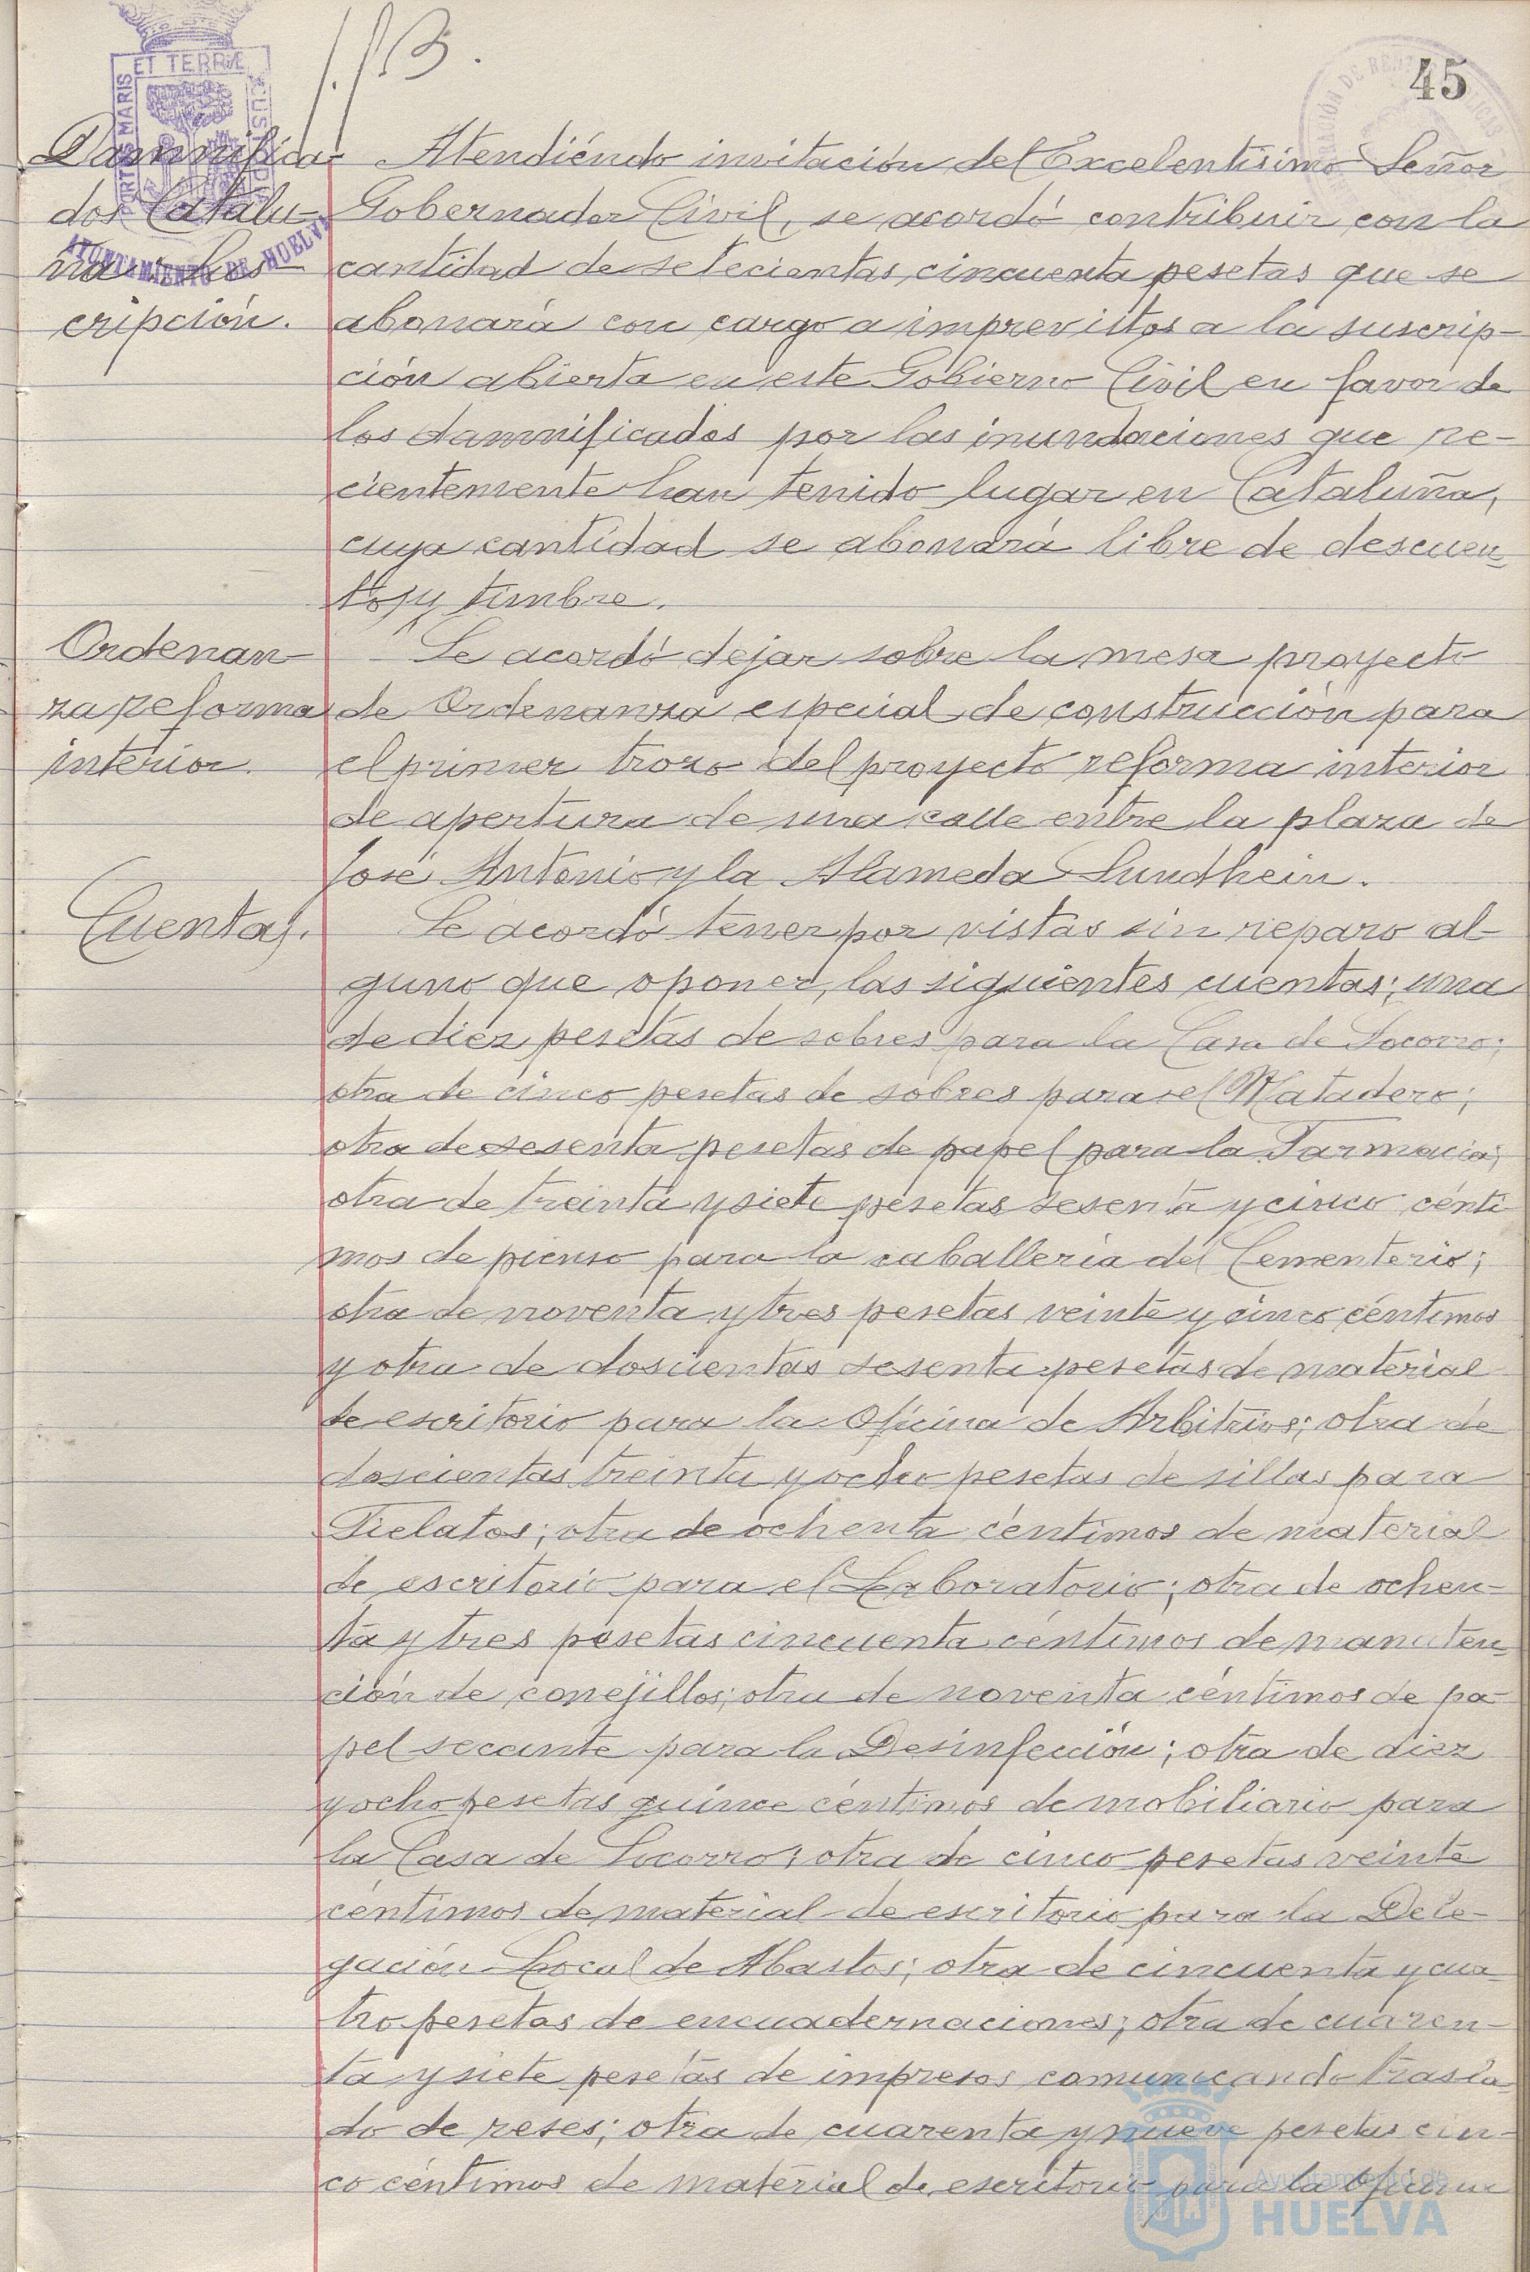 45
PORTUS MARIS ET TERRAE CUSTODIA
AYUNTAMIENTO DE HUELVA
Damnifica-
dos Catalu-
ña. Sus-
cripción.
Atendiéndo invitación del Excelentisimo Señor
Gobernador Civil, se acordó contribuir con la
cantidad de setecientas cincuenta pesetas que se
abonará con cargo a imprevistos a la suscrip-
ción abierta en este Gobierno Civil en favor de
los damnificados por las inundaciones que re-
cientemente han tenido lugar en Cataluña,
cuya cantidad se abonará libre de descuen-
tos y timbre.
Ordenan-
za reforma
interior.
Se acordó dejar sobre la mesa proyecto
de Ordenanza especial de construcción para
el primer trozo del proyecto reforma interior
de apertura de una calle entre la plaza de
José Antonio y la Alameda Sundhein.
Cuentas.
Se acordó tener por vistas sin reparo al-
guno que oponer, las siguientes cuentas; una
de diez pesetas de sobres para la Casa de Socorro;
otra de cinco pesetas de sobres para el Matadero;
otra de sesenta pesetas de papel para la Farmacia;
otra de treinta y siete pesetas sesenta y cinco cénti-
mos de pienso para la caballería del Cementerio;
otra de noventa y tres pesetas veinte y cinco céntimos
y otra de doscientas sesenta pesetas de material
de escritorio para la Oficina de Arbitrios; otra de
doscientas treinta y ocho pesetas de sillas para
Fielatos; otra de ochenta céntimos de material
de escritorio para el Laboratorio; otra de ochen-
ta y tres pesetas cincuenta céntimos de manuten-
ción de conejillos; otra de noventa céntimos de pa-
pel secante para la Desinfección; otra de diez
y ocho pesetas quince céntimos de mobiliario para
la Casa de Socorro; otra de cinco pesetas veinte
céntimos de material de escritorio para la Dele-
gación Local de Abastos; otra de cincuenta y cua-
tro pesetas de encuadernaciones; otra de cuaren-
ta y siete pesetas de impresos comunicando trasla-
do de reses; otra de cuarenta y nueve pesetas cin-
co céntimos de material de escritorio para la Oficina
Ayuntamiento de
HUELVA